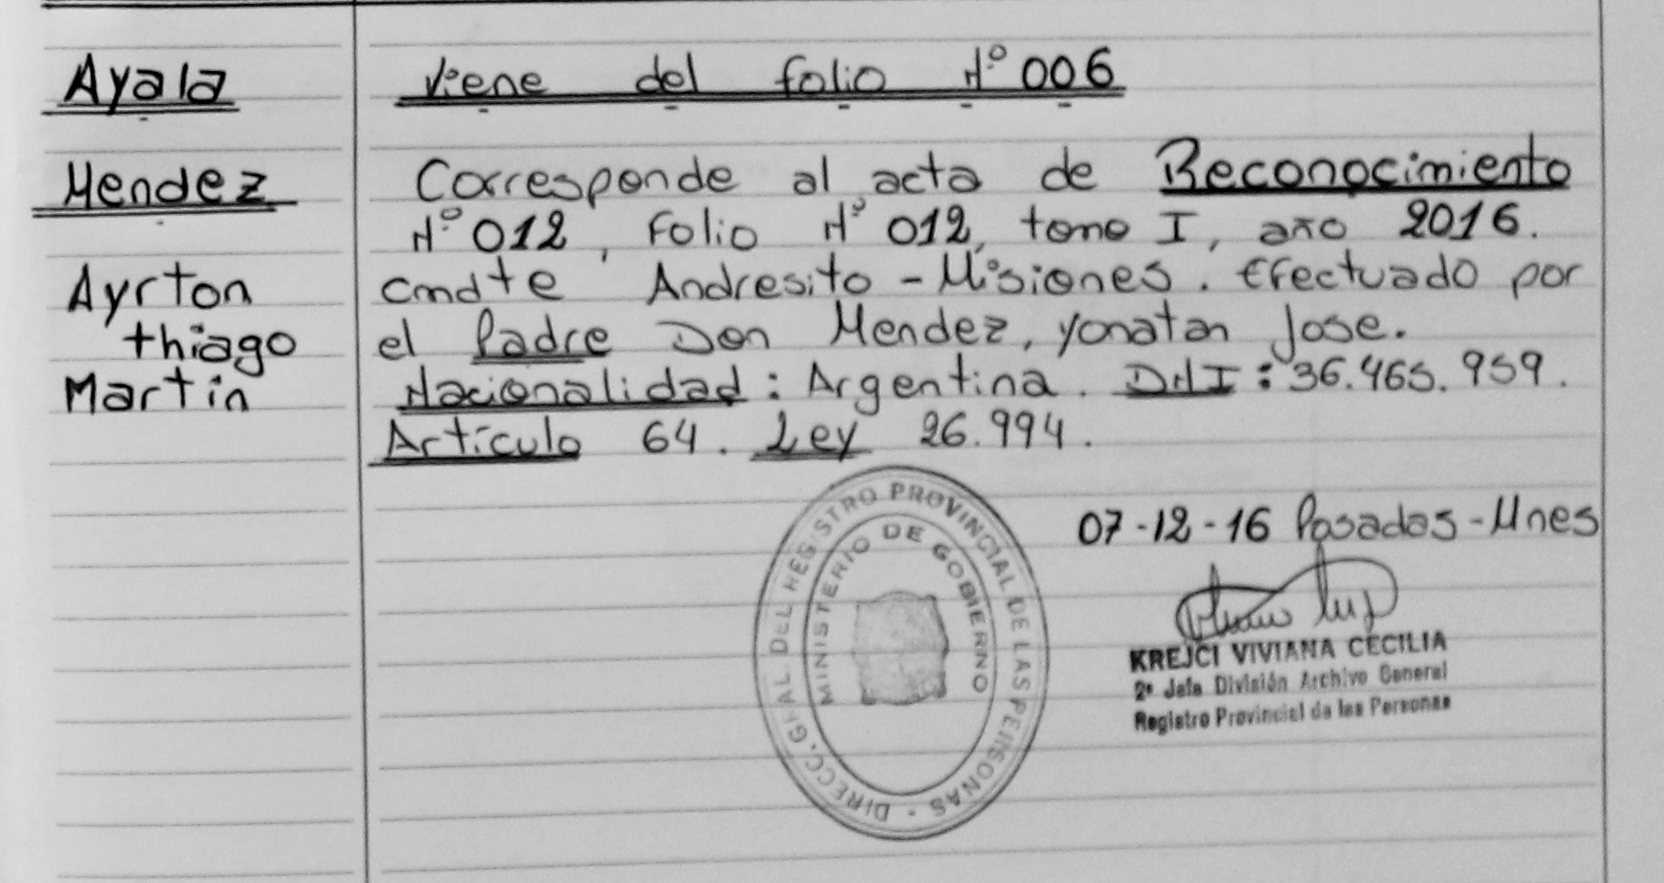 Ayala
Mendez
Ayrton
thiago
Martin
Viene del folio Nº 006
Corresponde al acta de Reconocimiento
Nº 012, Folio Nº 012, tomo I, año 2016.
cmdte Andresito - Misiones. Efectuado por
el Padre Don Mendez, yonatan Jose.
Nacionalidad: Argentina. DNI: 36.465.959.
Artículo 64. Ley 26.994.
07-12-16 Posadas-Mnes
DIRECC. GRAL DEL REGISTRO PROVINCIAL DE LAS PERSONAS
MINISTERIO DE GOBIERNO
KREJCI VIVIANA CECILIA
2º Jefe División Archivo General
Registro Provincial de las Personas